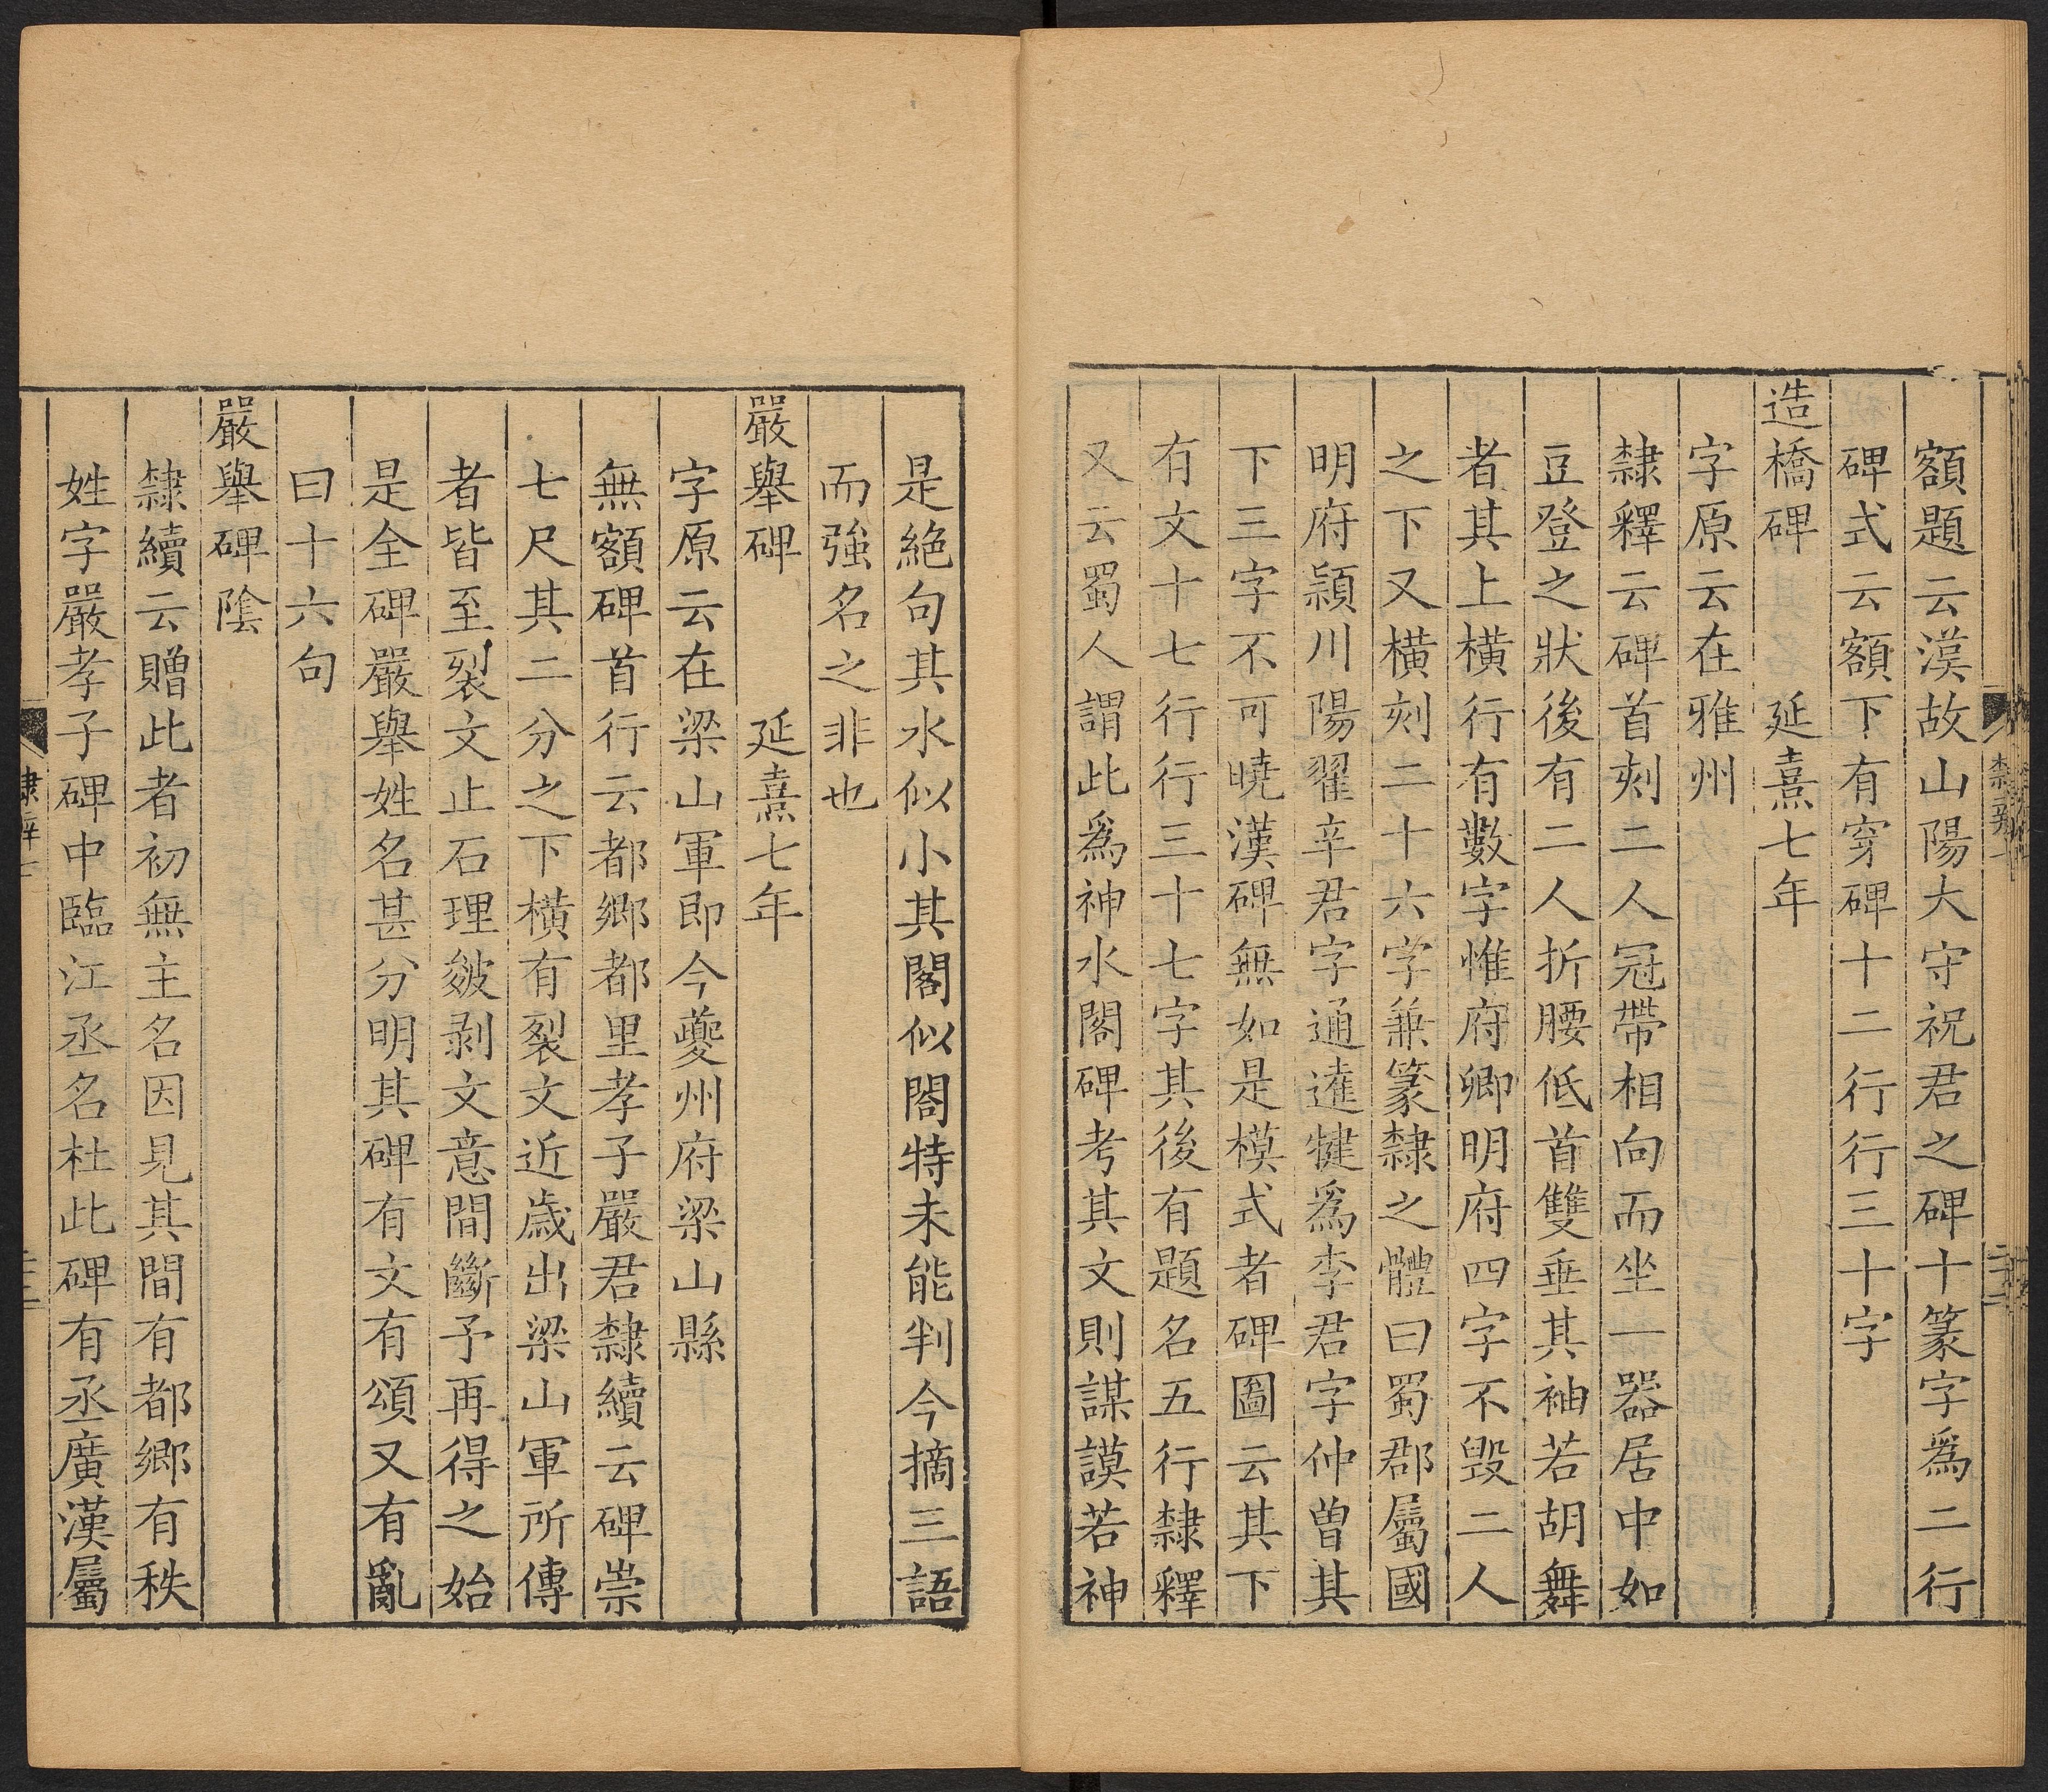 額題云漢故山陽大守祝君之碑十篆字為二行
碑式云額下有穿碑十二行行三十字
造橋碑 延熹七年
字原云在雅州
隸釋云碑首刻二人冠帶相向而坐一器居中如
豆登之狀後有二人折腰低首雙垂其袖若胡舞
者其上橫行有數字惟府卿明府四字不毀二人
之下又橫刻二十六字兼篆隸之體曰蜀郡屬國
明府潁川陽翟辛君字通達犍為李君字仲曾其
下三字不可曉漢碑無如是模式者碑圖云其下
有文十七行行三十七字其後有題名五行隸釋
又云蜀人謂此為神水閣碑考其文則謀謨若神
是絕句其水似小其閣似閤特未能判今摘三語
而強名之非也
嚴舉碑 延熹七年
字原云在梁山軍即今夔州府梁山縣
無額碑首行云都鄉都里孝子嚴君隸續云碑崇
七尺其二分之下橫有裂文近歲出梁山軍所傳
者皆至裂文止石理皴剥文意間斷予再得之始
是全碑嚴舉姓名甚分明其碑有文有頌又有亂
曰十六句
嚴舉碑陰
隸續云贈此者初無主名因見其間有都鄉有秩
姓字嚴孝子碑中臨江丞名杜此碑有丞廣漢屬